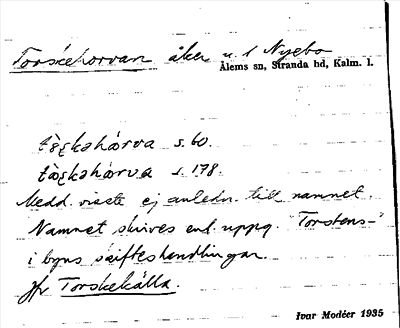 Torskehorvan åker u. 1 Nyebo
Ålems sn, Stranda hd, Kalm. l.
tò̱ʂkəhárva s. 60.
tòʂkəhárva s. 178.
Medd. visste ej anledn. till namnet.
Namnet skrives enl. uppg. "Torstens-"
i byns skifteshandlingar.
Jfr Torskekälla.
Ivar Modéer 1935